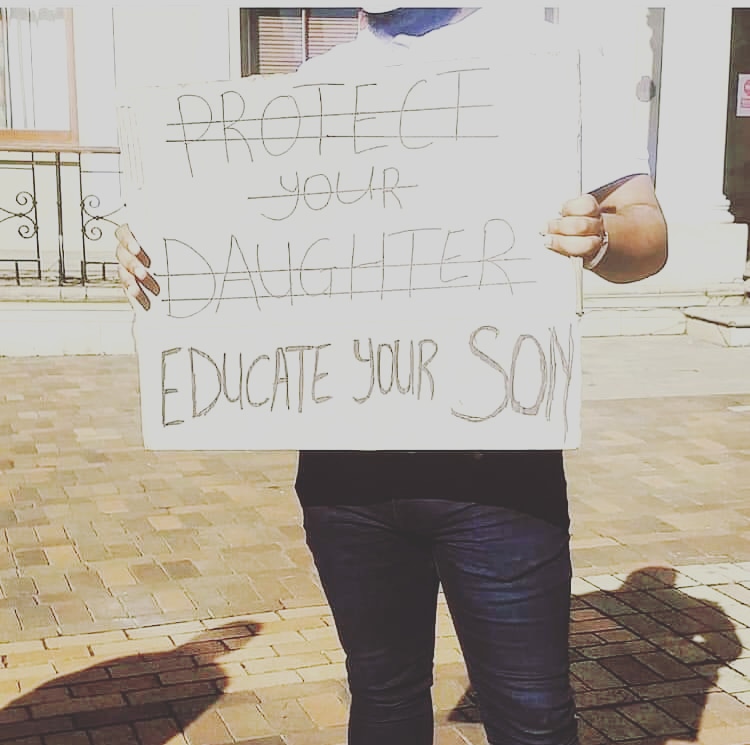 PROTECT
YOUR
DAUGHTER
EDUCATE YOUR SON